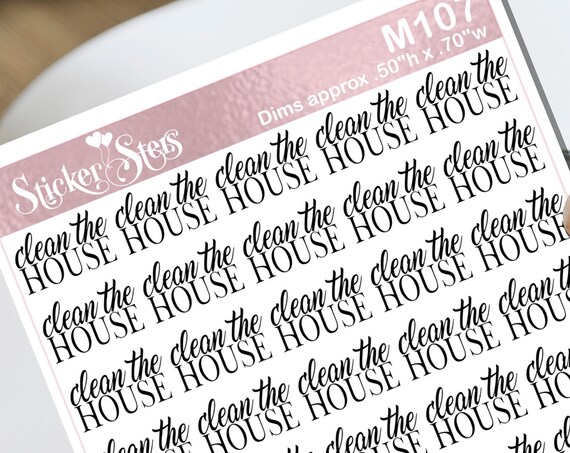 M107
Sticker Sters
Dims approx .50"h x .70"w
clean the clean the clean the clean the clean the
HOUSE HOUSE HOUSE HOUSE HOUSE
clean the clean the clean the clean the clean the
HOUSE HOUSE HOUSE HOUSE HOUSE
clean the clean the clean the clean the clean the
HOUSE HOUSE HOUSE HOUSE HOUSE
clean the clean the clean the clean the clean the
HOUSE HOUSE HOUSE HOUSE
clean the clean the
HOUSE
the